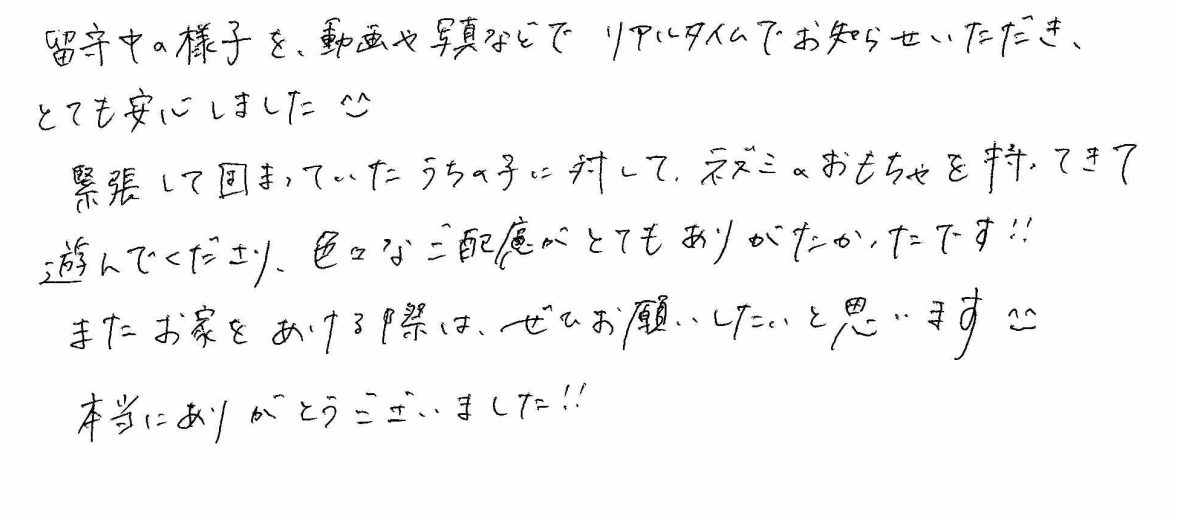 留守中の様子を、動画や写真などで リアルタイムでお知らせいただき、
とても安心しました ^^
緊張して固まっていたうちの子に対して、ネズミのおもちゃを持ってきて
遊んでくださり、色々なご配慮がとてもありがたかったです!!
またお家をあける際は、ぜひお願いしたいと思います ^^
本当にありがとうございました!!